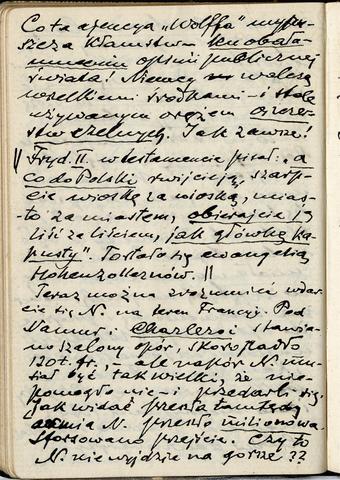 Co ta agencya „Wolffa” wypu-
szcza kłamstw – ku obała-
muceniu opinii publicznej
świata! Niemcy walczą
wszelkiemi środkami – i stale
używanym orężem oszcze-
rstw czelnych. Jak zawsze!
|| Fryd. II. w testamencie pisał: „a
co do Polski zwijcie ją, szarp-
cie wioskę za wioską, mias-
to za miastem, obierajcie ją
liść za liściem, jak główkę ka-
pusty”. To stało się ewangelią
Hohenzollernów. ||
Teraz można zrozumieć wdar-
cie się N. na teren Francyi. Pod
Namur i Charleroi stawia-
no szalony opór, skoro padło
120 t. fr., – ale napór N. mu-
siał być tak wielki, że nie-
pomogło nic – i przedarli się.
Jak widać przeszła tamtędy
armia N. przeszło milionowa.
Forsowano przejście. Czy to
N. nie wyjdzie na gorsze ??